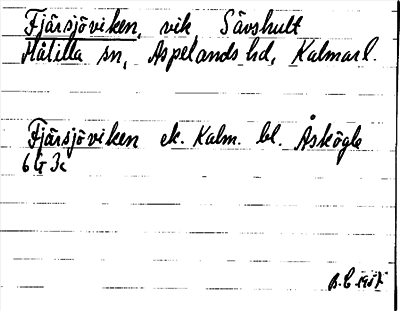 Fjärsjöviken, vik, Sävshult
Målilla sn, Aspelands hd, Kalmar l.
Fjärsjöviken ek. Kalm. bl. Åskögle
6G 3c
B.C 1957